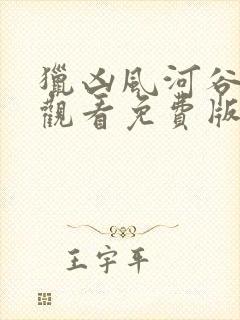 獵凶風河谷
觀看免費版
王宇平